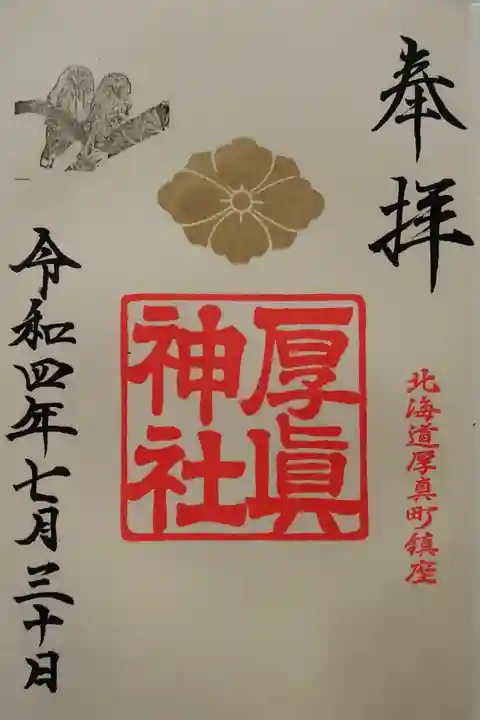 奉拝
北海道厚真町鎮座
厚眞
神社
令和四年七月三十日